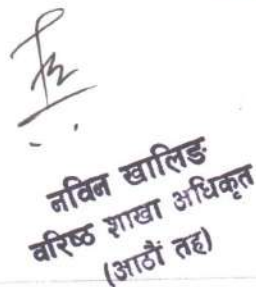 नविन खालिङ
वरिष्ठ शाखा अधिकृत
(आठौं तह)